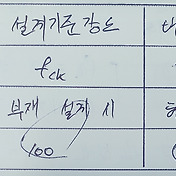 설계기준강도
fck
부재 설계 시
100